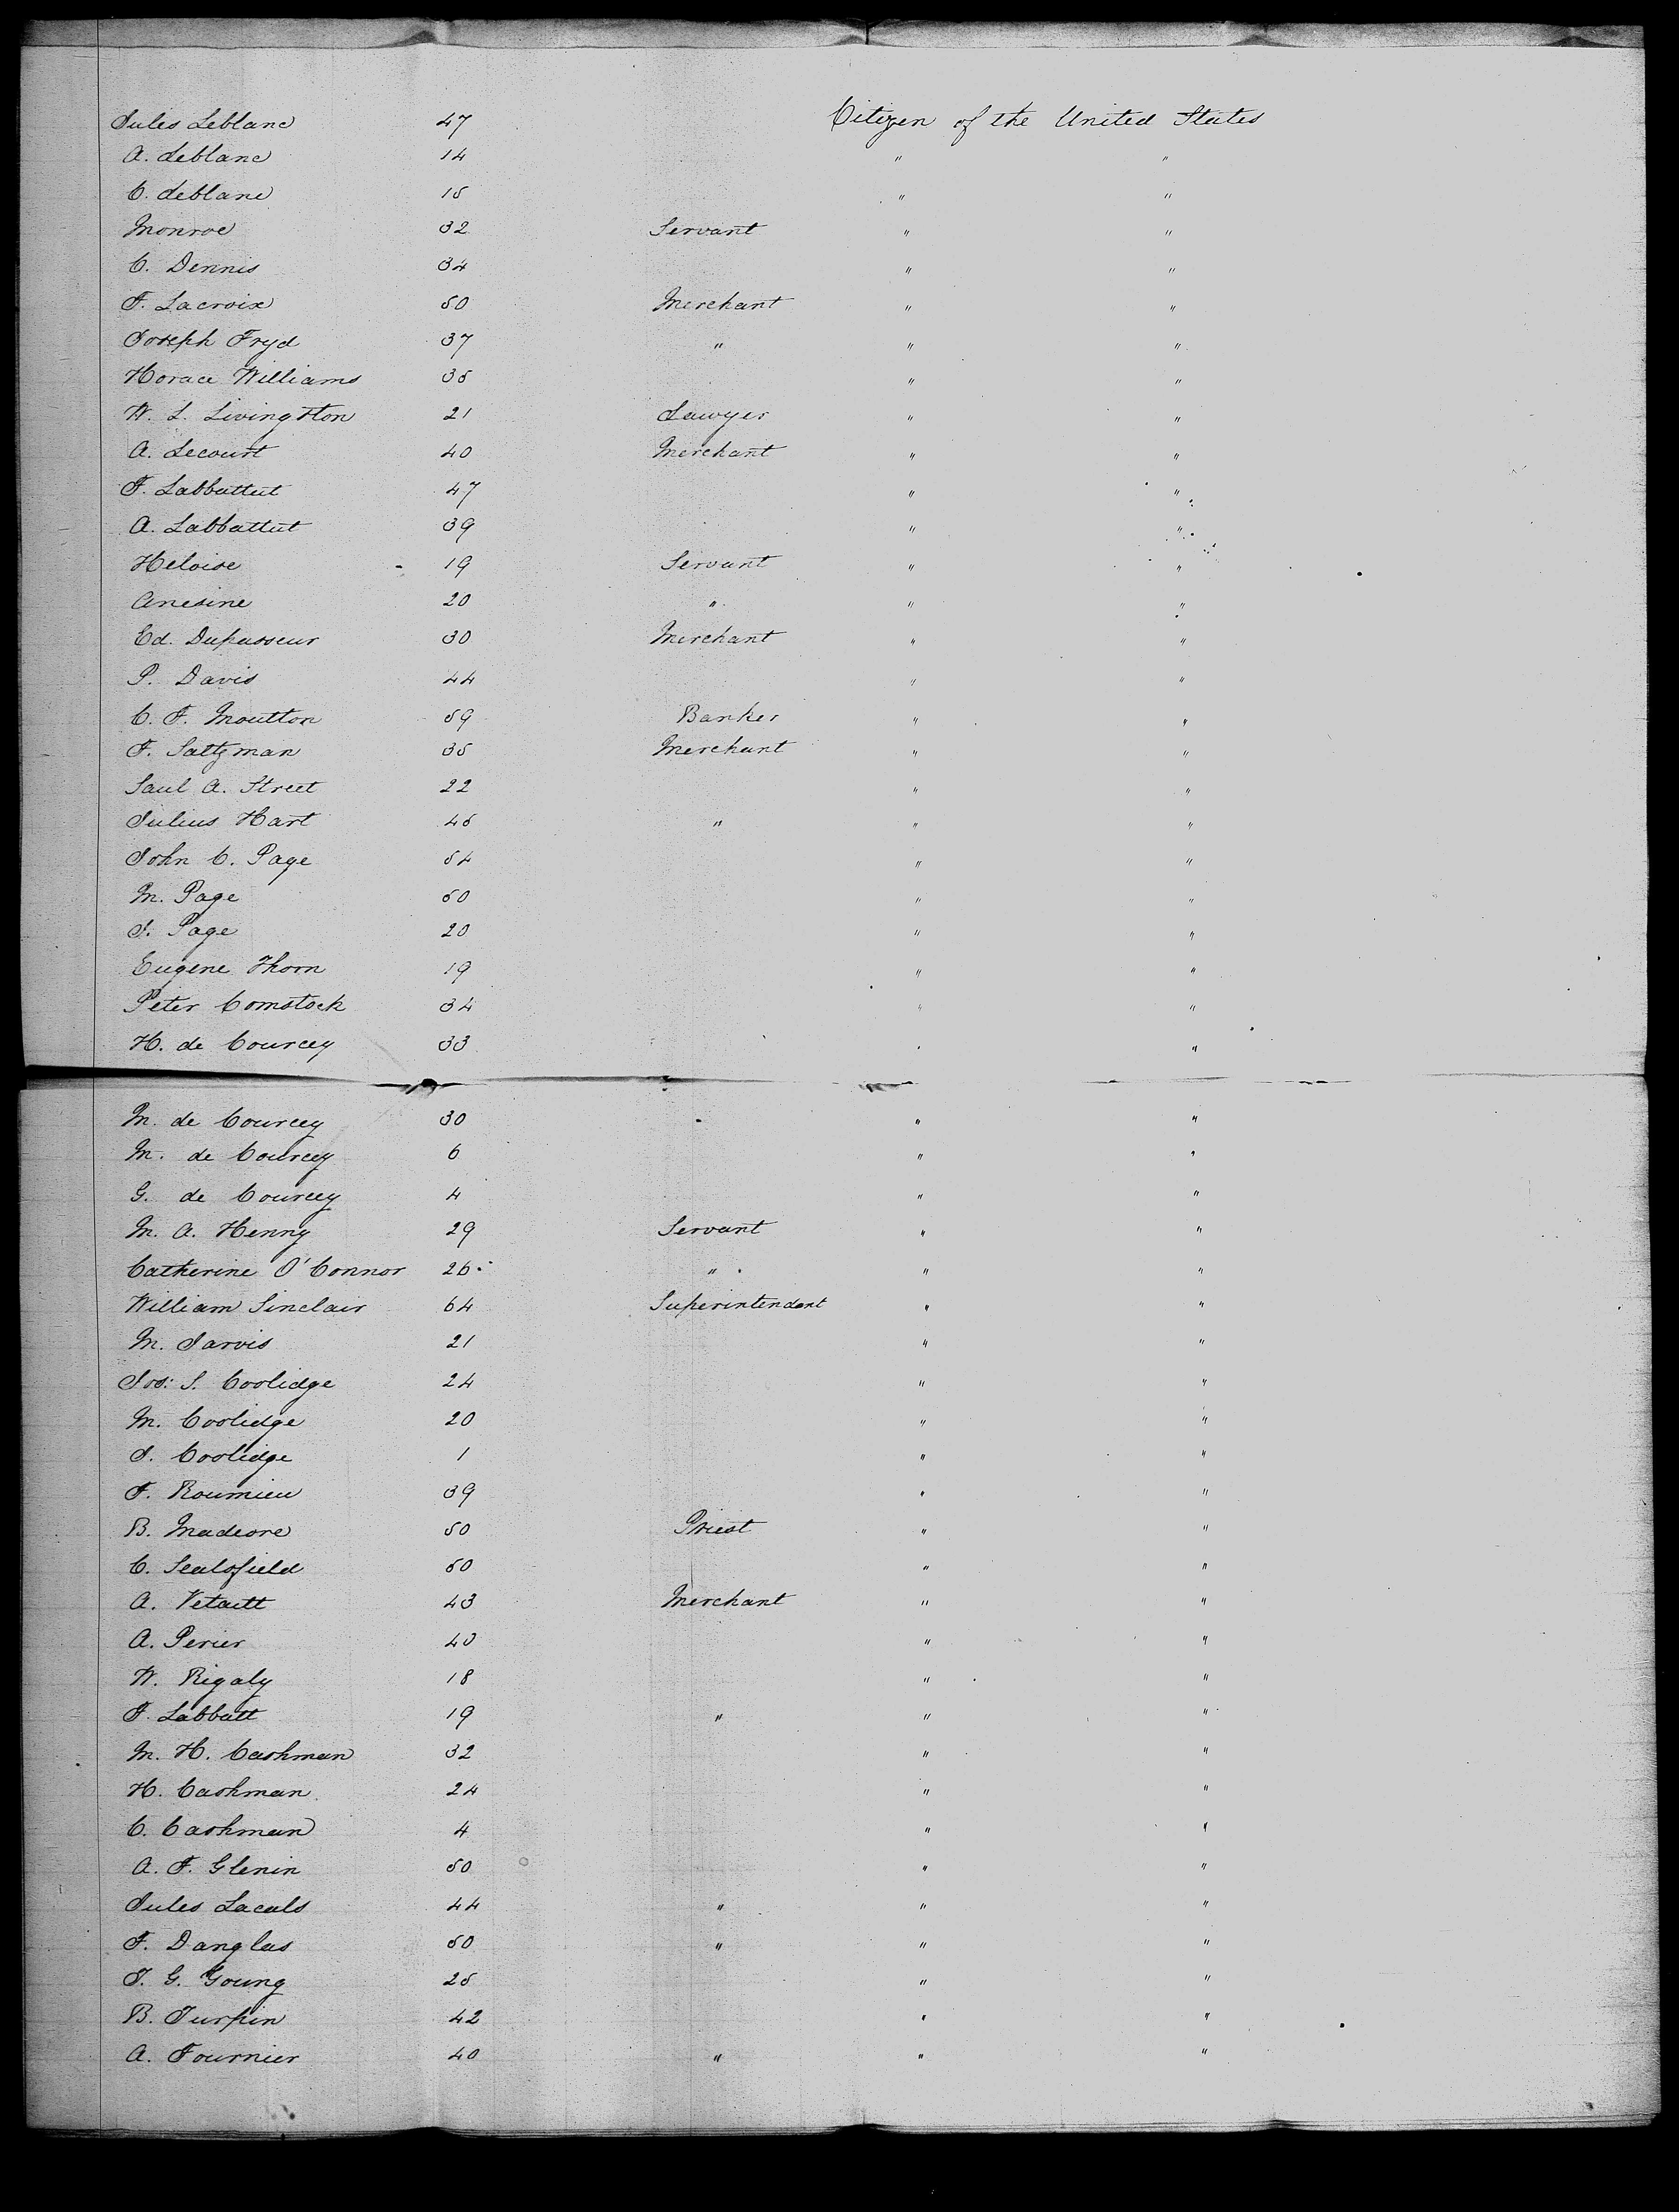 Jules Leblanc 47 Citizen of the United States
A. Leblanc 14 " "
C. Leblanc 15 " "
Monroe 32 Servant " "
C. Dennis 34 " "
F. Lacroix 50 Merchant " "
Joseph Fryd 37 " " "
Horace Williams 35 " "
W. L. Livingston 21 Lawyer " "
A. Lecourt 40 Merchant " "
F. Labbattut 47 " "
A. Labbattut 39 " "
Heloise 19 Servant " "
Anesine 20 " " "
Ed. Dupasseur 30 Merchant " "
P. Davis 44 " "
C. F. Moutton 59 Banker " "
F. Saltzman 35 Merchant " "
Saul A. Street 22 " "
Julius Hart 45 " " "
John C. Page 54 " "
M. Page 50 " "
J. Page 20 " "
Eugene Thorn 19 " "
Peter Comstock 34 " "
H. de Courcey 33 " "
M. de Courcey 30 " "
M. de Courcey 6 " "
G. de Courcey 4 " "
M. A. Henny 29 Servant " "
Catherine O'Connor 26 " " "
William Sinclair 64 Superintendant " "
M. Jarvis 21 " "
Jos: S. Coolidge 24 " "
M. Coolidge 20 " "
J. Coolidge 1 " "
F. Roumieu 39 " "
B. Madeore 50 Priest " "
C. Sealsfield 60 " "
A. Vetault 43 Merchant " "
A. Perier 40 " "
W. Rigaly 18 " "
F. Labbatt 19 " " "
M. H. Cashman 32 " "
H. Cashman 24 " "
C. Cashman 4 " "
A. F. Glenin 50 " "
Jules Lacals 44 " " "
F. Danglas 50 " " "
J. G. Young 25 " "
B. Turpin 42 " "
A. Fournier 40 " " "